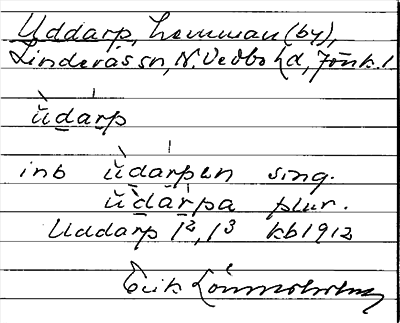 Uddarp, hemman (by),
Linderås sn, N. Vedbo hd, Jönk. l
ùdárp
inb ùdárpen sing.
ùdàrpa plur.
Uddarp 1², 1³ kb 1912
Erik